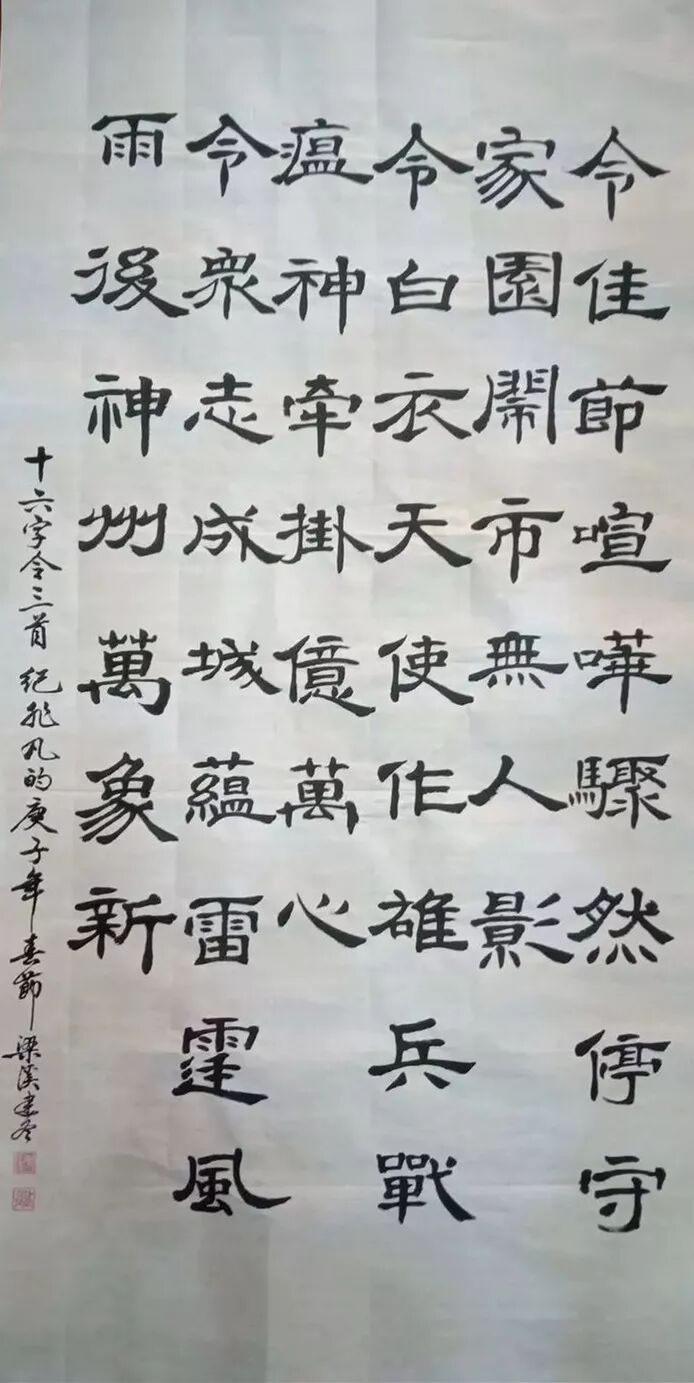 令佳節喧嘩驟然停守
家園鬧市無人影
令白衣天使作雄兵戰
瘟神牽掛億萬心
令眾志成城蘊雷霆風
雨後神州萬象新
十六字令三首 紀非凡的庚子年春節 梁溪